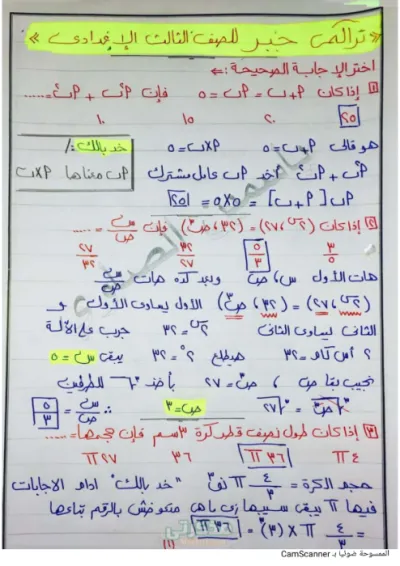 « تراكمى جبر للصف الثالث الإعدادى »
اختر الإجابة الصحيحة :-
١ إذا كان ٢ + ب = ٢ب = ٥ فإن ٢²ب + ٢ب² = ......
٢٥ ٢٠ ١٥ ١٠
هو قالى ٢ + ب = ٥ ٢×ب = ٥ خد بالك :/
٢²ب + ٢ب² خد ٢ب عامل مشترك ٢ب معناها ٢×ب
٢ب [٢ + ب] = ٥×٥ = ٢٥
٢ إذا كان (٢^س ، ٢٧) = (٣٢ ، ص³) فإن س/ص = ......
٣/٥ ٥/٣ ٣٢/٢٧ ٢٧/٣٢
هات الأول س ، ص وبعد كده هات س/ص
(٢^س ، ٢٧) = (٣٢ ، ص³) الأول يساوى الأول و
الثانى يساوى الثانى ٢^س = ٣٢ جرب على الآلة
٢ أس كام = ٣٢ هيطلع ٢⁵ = ٣٢ يبقى س = ٥
نجيب بقا ص ، ص³ = ٢٧ بأخذ ∛ للطرفين
∛ص³ = ∛٢٧ ص = ٣ ∴ س/ص = ٥/٣
٣ إذا كان طول نصف قطر كرة ٣سم فإن حجمها = ......
٤π ٣٦π ٣٦ ٢٧π
حجم الكرة = ٤/٣ π نق³ "خد بالك" ادام الاجابات
فيها π يبقى سيبها زى ما هى متعوضش بالرقم بتاعها
= ٤/٣ π × (٣)³ = ٣٦π
(١)
الممسوحة ضوئيا بـ CamScanner